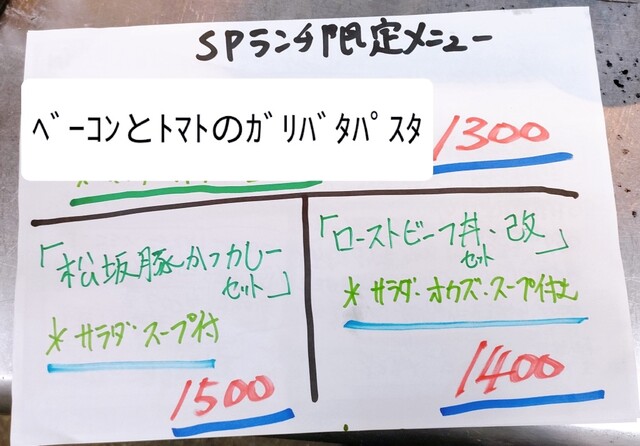 SPランチ限定メニュー
ﾍﾞｰｺﾝとﾄﾏﾄのｶﾞﾘﾊﾞﾀﾊﾟｽﾀ
1300
「松坂豚かつカレー
セット」
*サラダ・スープ付
1500
「ローストビーフ丼・改」
セット
*サラダ・オカズ・スープ付む
1400